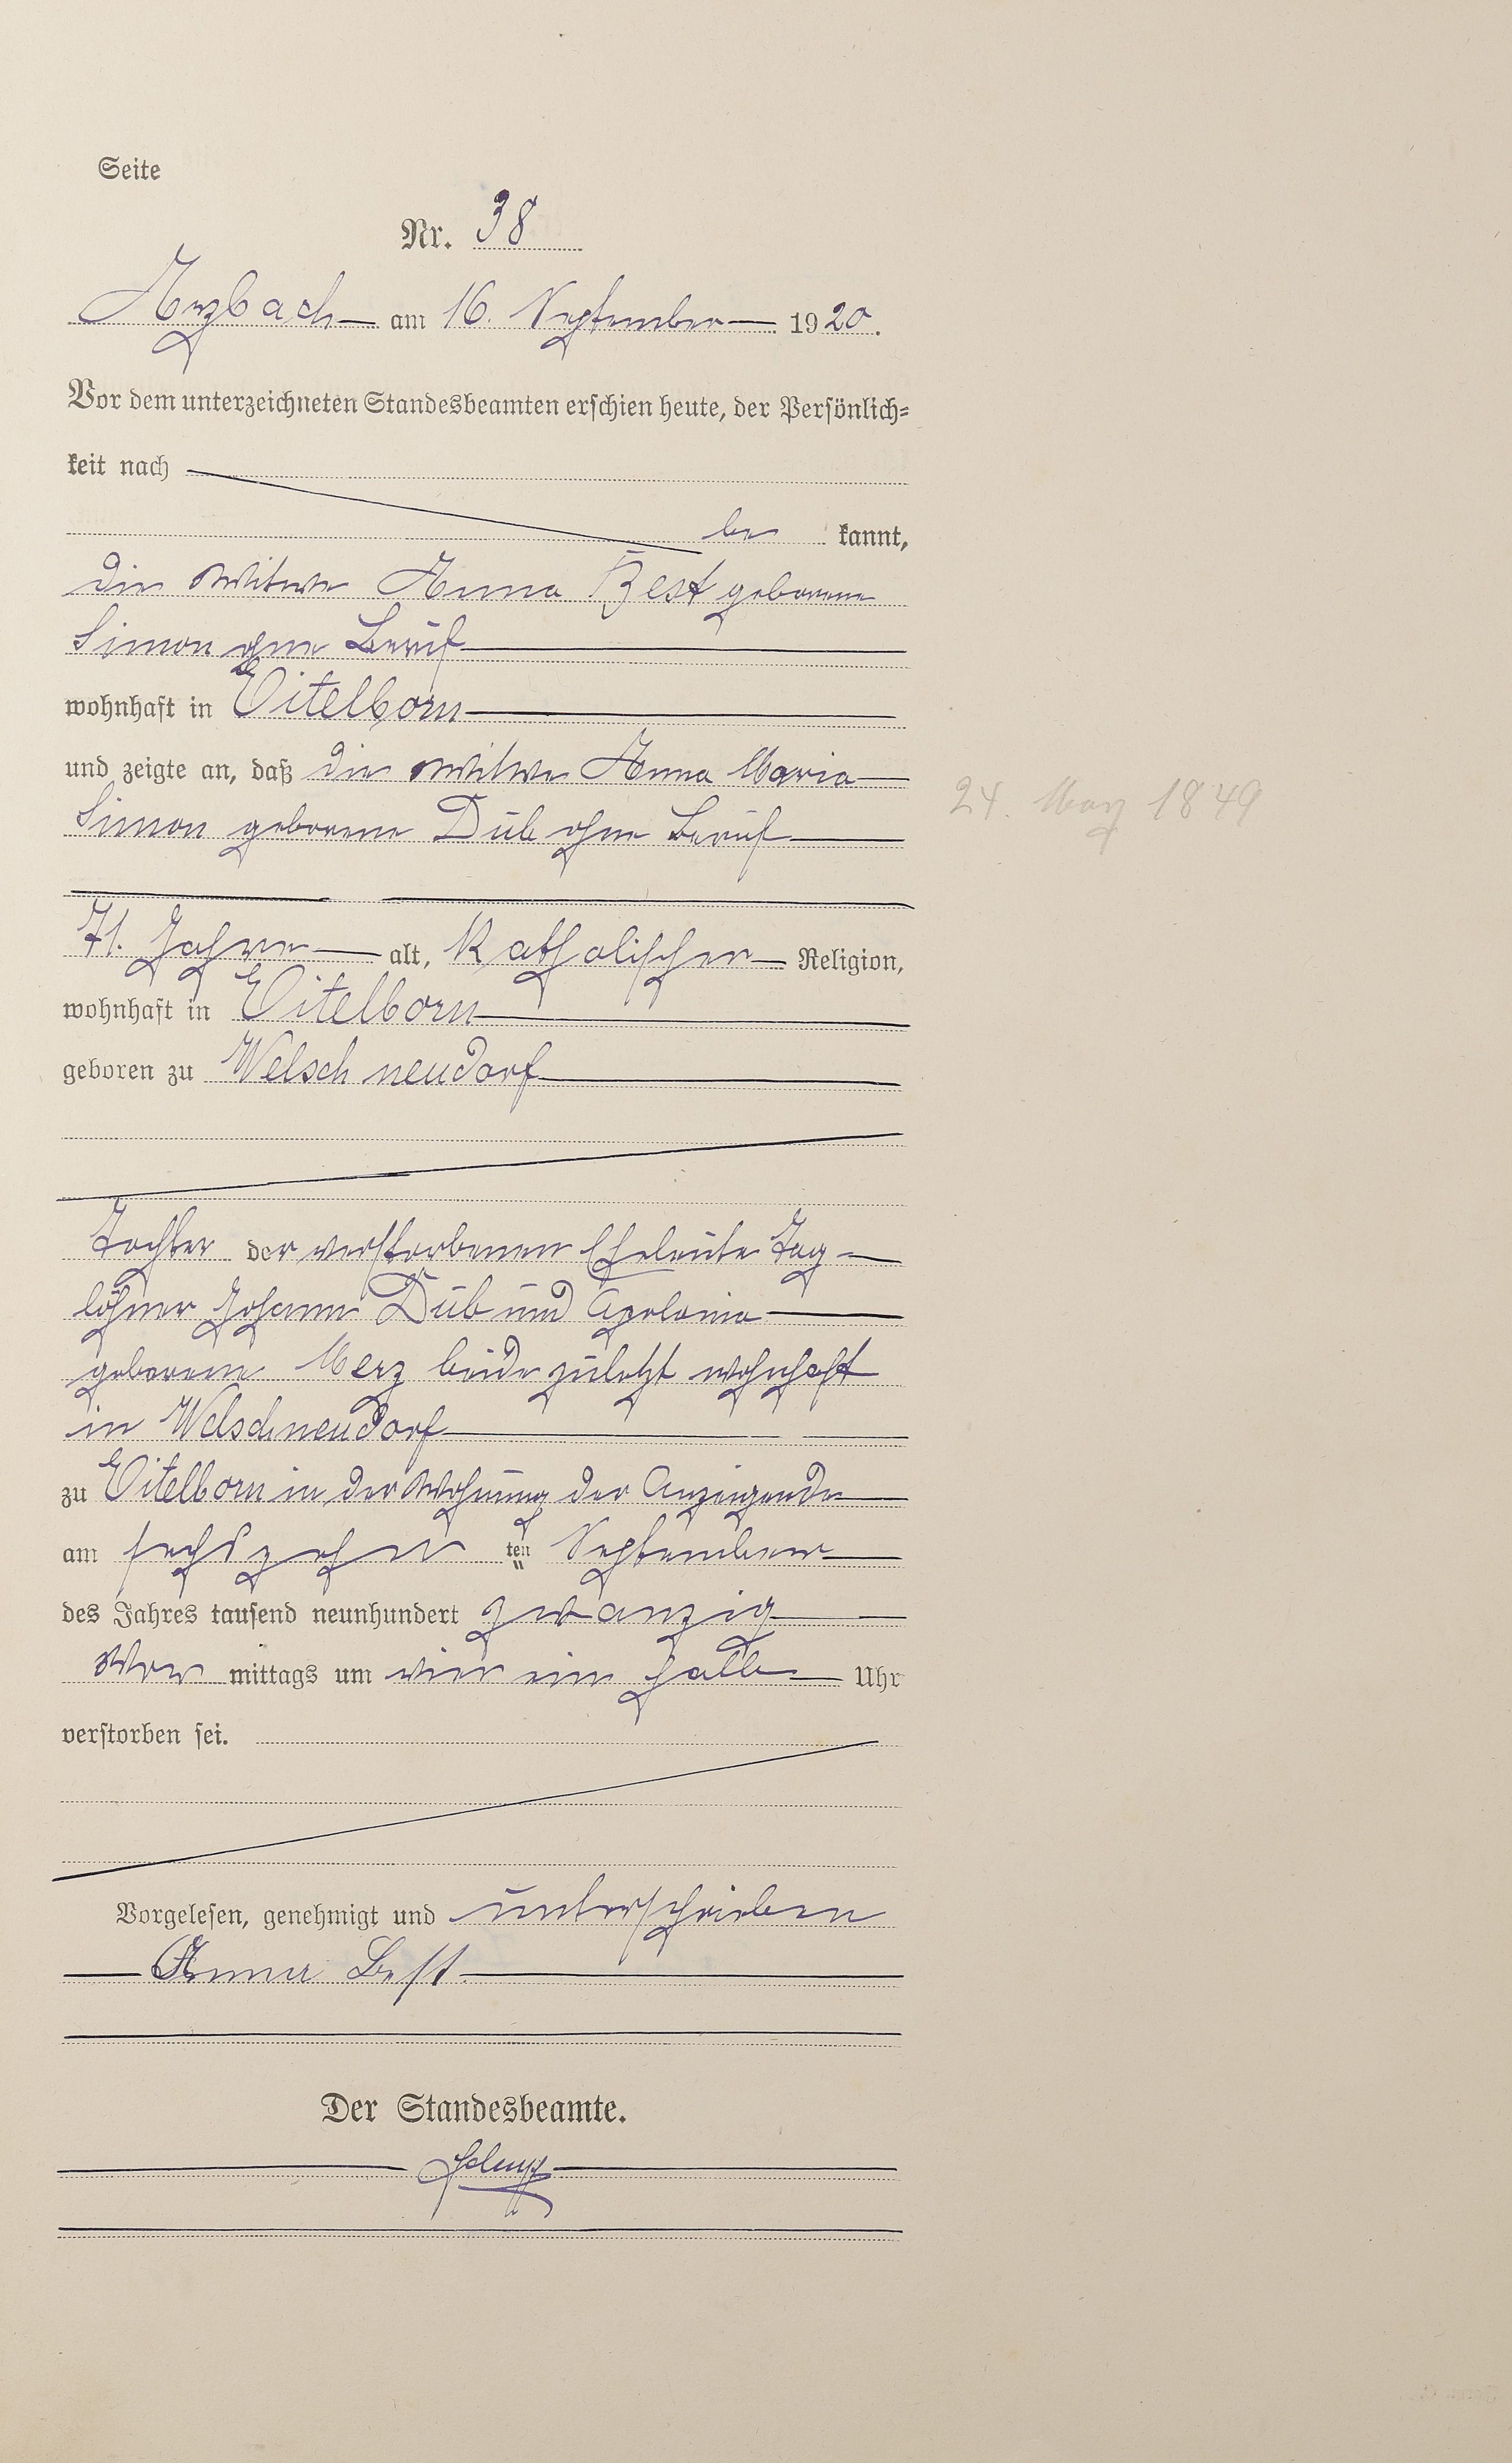 Seite
Nr. 38
Arzbach am 16. September 1920.
Vor dem unterzeichneten Standesbeamten erschien heute, der Persönlich-
keit nach
be kannt,
die Witwe Anna Best geborene
Simon ohne Beruf
wohnhaft in Eitelborn
und zeigte an, daß die Witwe Anna Maria
Simon geborene Düb ohne Beruf
24. May 1849
71. Jahre alt, Katholischer Religion,
wohnhaft in Eitelborn
geboren zu Welschneudorf
Tochter der verstorbenen Eheleute Tag-
löhner Johann Düb und Apolonia
geborene Merz beide zuletzt wohnhaft
in Welschneudorf
zu Eitelborn in der Wohnung der Anzeigende
am sechszehn ten September
des Jahres tausend neunhundert zwanzig
Vor mittags um vier ein halb Uhr
verstorben sei.
Vorgelesen, genehmigt und unterschrieben
Anna Best
Der Standesbeamte.